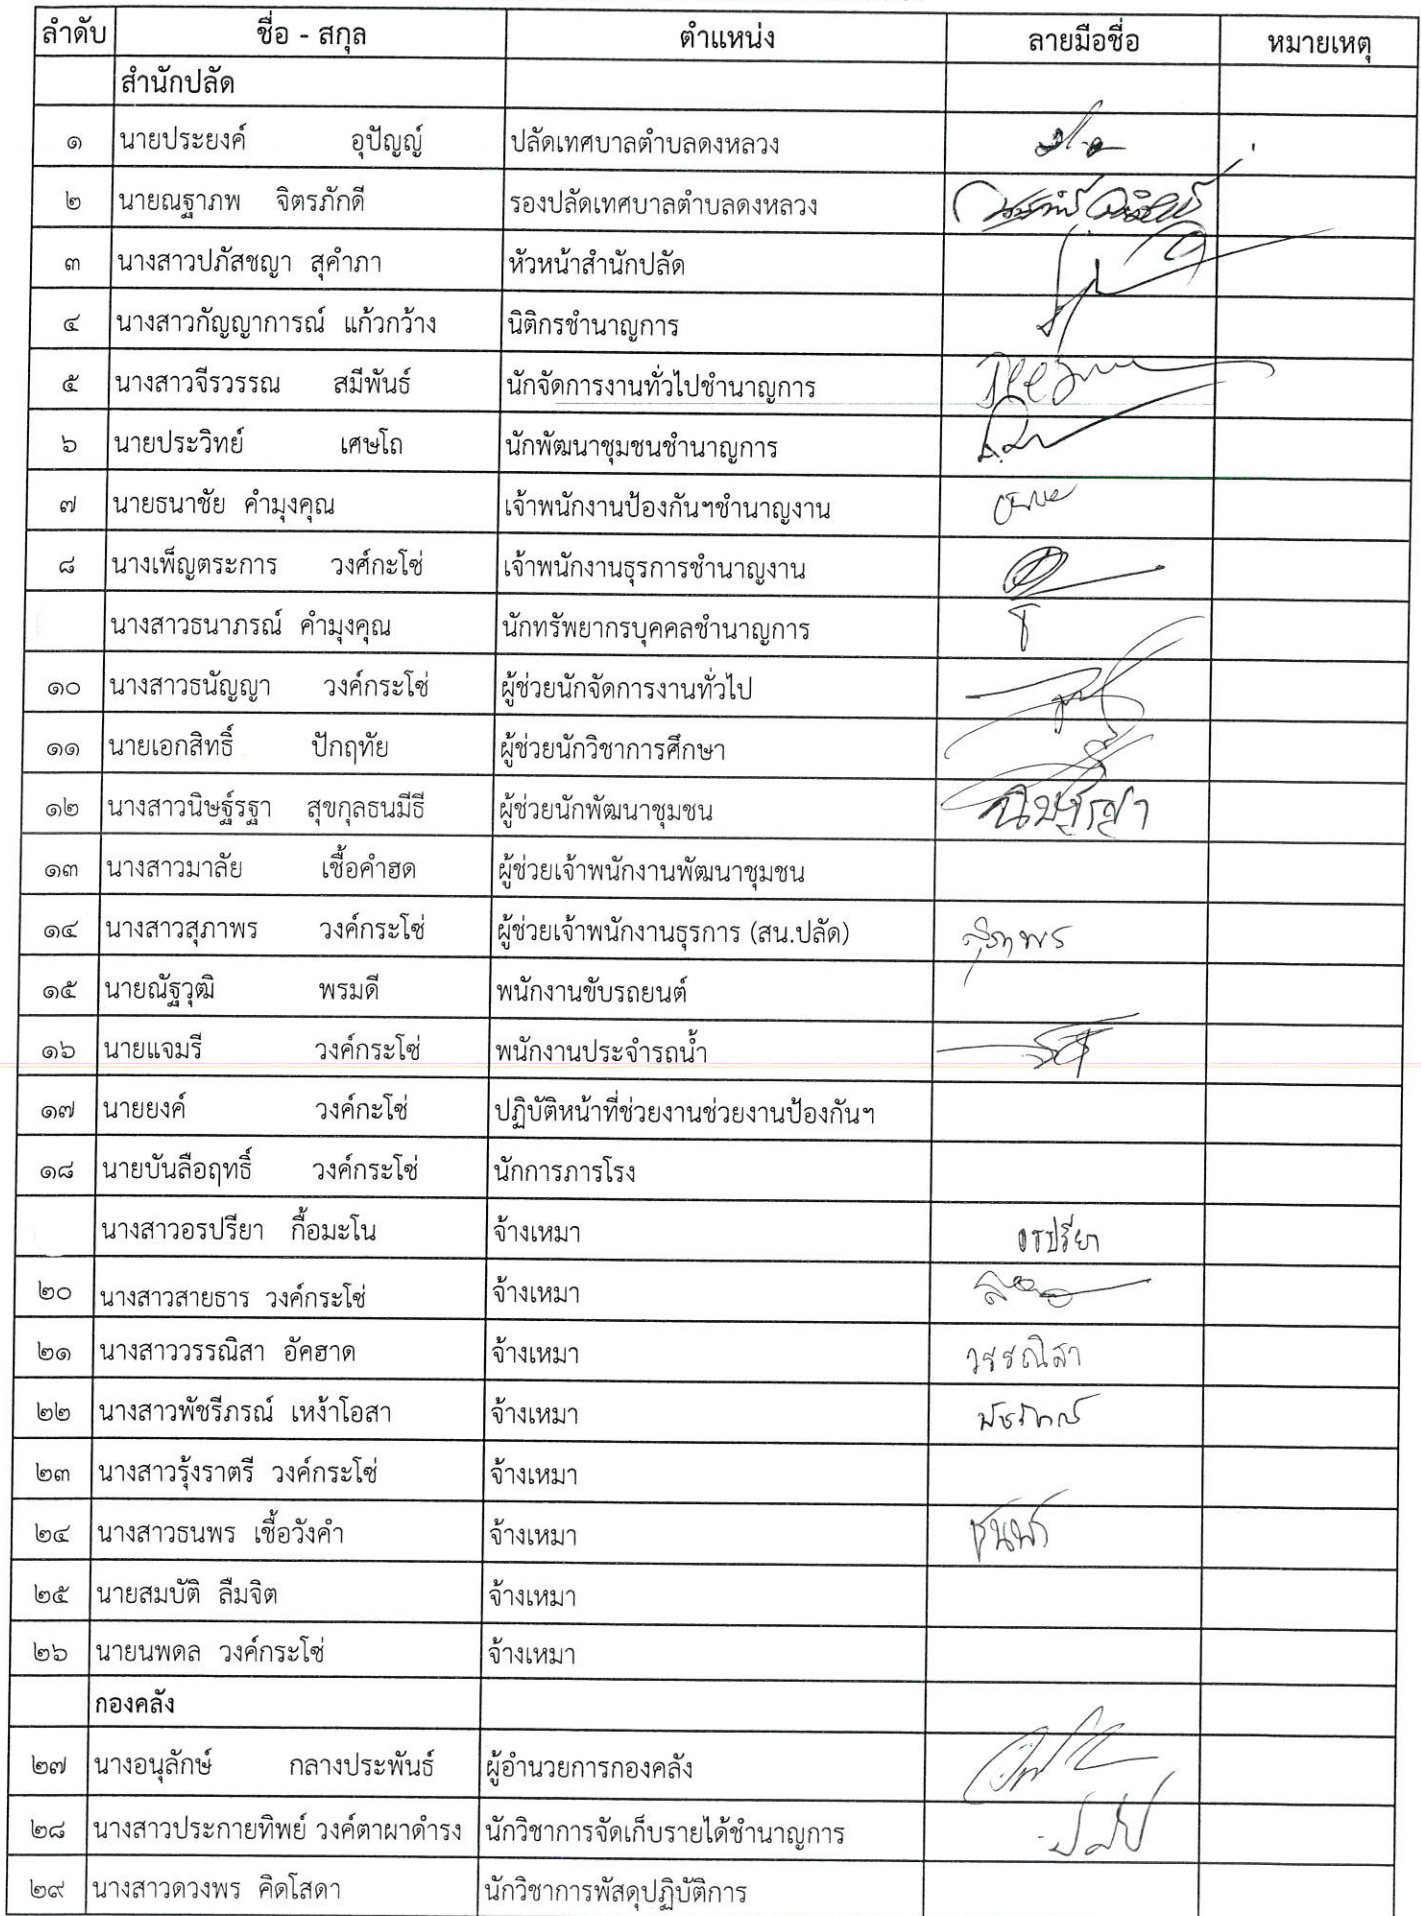 ลำดับ ชื่อ - สกุล ตำแหน่ง ลายมือชื่อ หมายเหตุ
สำนักปลัด
๑ นายประยงค์ อุปัญญ์ ปลัดเทศบาลตำบลดงหลวง
๒ นายณฐาภพ จิตรภักดี รองปลัดเทศบาลตำบลดงหลวง
๓ นางสาวปภัสชญา สุคำภา หัวหน้าสำนักปลัด
๔ นางสาวกัญญาการณ์ แก้วกว้าง นิติกรชำนาญการ
๕ นางสาวจีรวรรณ สมีพันธ์ นักจัดการงานทั่วไปชำนาญการ
๖ นายประวิทย์ เศษโถ นักพัฒนาชุมชนชำนาญการ
๗ นายธนาชัย คำมุงคุณ เจ้าพนักงานป้องกันฯชำนาญงาน
๘ นางเพ็ญตระการ วงศ์กะโซ่ เจ้าพนักงานธุรการชำนาญงาน
นางสาวธนาภรณ์ คำมุงคุณ นักทรัพยากรบุคคลชำนาญการ
๑๐ นางสาวธนัญญา วงค์กระโซ่ ผู้ช่วยนักจัดการงานทั่วไป
๑๑ นายเอกสิทธิ์ ปักฤทัย ผู้ช่วยนักวิชาการศึกษา
๑๒ นางสาวนิษฐ์รฐา สุขกุลธนมีธี ผู้ช่วยนักพัฒนาชุมชน
๑๓ นางสาวมาลัย เชื้อคำฮด ผู้ช่วยเจ้าพนักงานพัฒนาชุมชน
๑๔ นางสาวสุภาพร วงค์กระโซ่ ผู้ช่วยเจ้าพนักงานธุรการ (สน.ปลัด) สุภาพร
๑๕ นายณัฐวุฒิ พรมดี พนักงานขับรถยนต์
๑๖ นายแจมรี วงค์กระโซ่ พนักงานประจำรถน้ำ
๑๗ นายยงค์ วงค์กะโซ่ ปฏิบัติหน้าที่ช่วยงานช่วยงานป้องกันฯ
๑๘ นายบันลือฤทธิ์ วงค์กระโซ่ นักการภารโรง
นางสาวอรปรียา กื้อมะโน จ้างเหมา อรปรียา
๒๐ นางสาวสายธาร วงค์กระโซ่ จ้างเหมา
๒๑ นางสาววรรณิสา อัคฮาด จ้างเหมา วรรณิสา
๒๒ นางสาวพัชรีภรณ์ เหง้าโอสา จ้างเหมา
๒๓ นางสาวรุ้งราตรี วงค์กระโซ่ จ้างเหมา
๒๔ นางสาวธนพร เชื้อวังคำ จ้างเหมา
๒๕ นายสมบัติ ลืมจิต จ้างเหมา
๒๖ นายนพดล วงค์กระโซ่ จ้างเหมา
กองคลัง
๒๗ นางอนุลักษ์ กลางประพันธ์ ผู้อำนวยการกองคลัง
๒๘ นางสาวประกายทิพย์ วงค์ตาผาดำรง นักวิชาการจัดเก็บรายได้ชำนาญการ
๒๙ นางสาวดวงพร คิดโสดา นักวิชาการพัสดุปฏิบัติการ